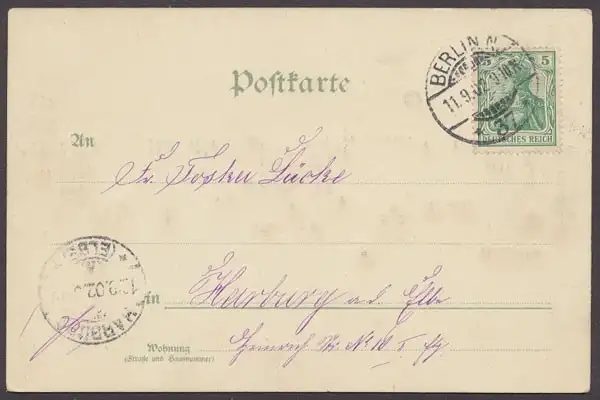 BERLIN N.
11.9.02.9-10N.
37
5
DEUTSCHES REICH
Postkarte
An
Fr. Toska Lücke
HARBURG
(ELBE)
12.9.02.
in Harburg a. d. Elbe
Wohnung
(Straße und Hausnummer)
Heinrich Str. No 10